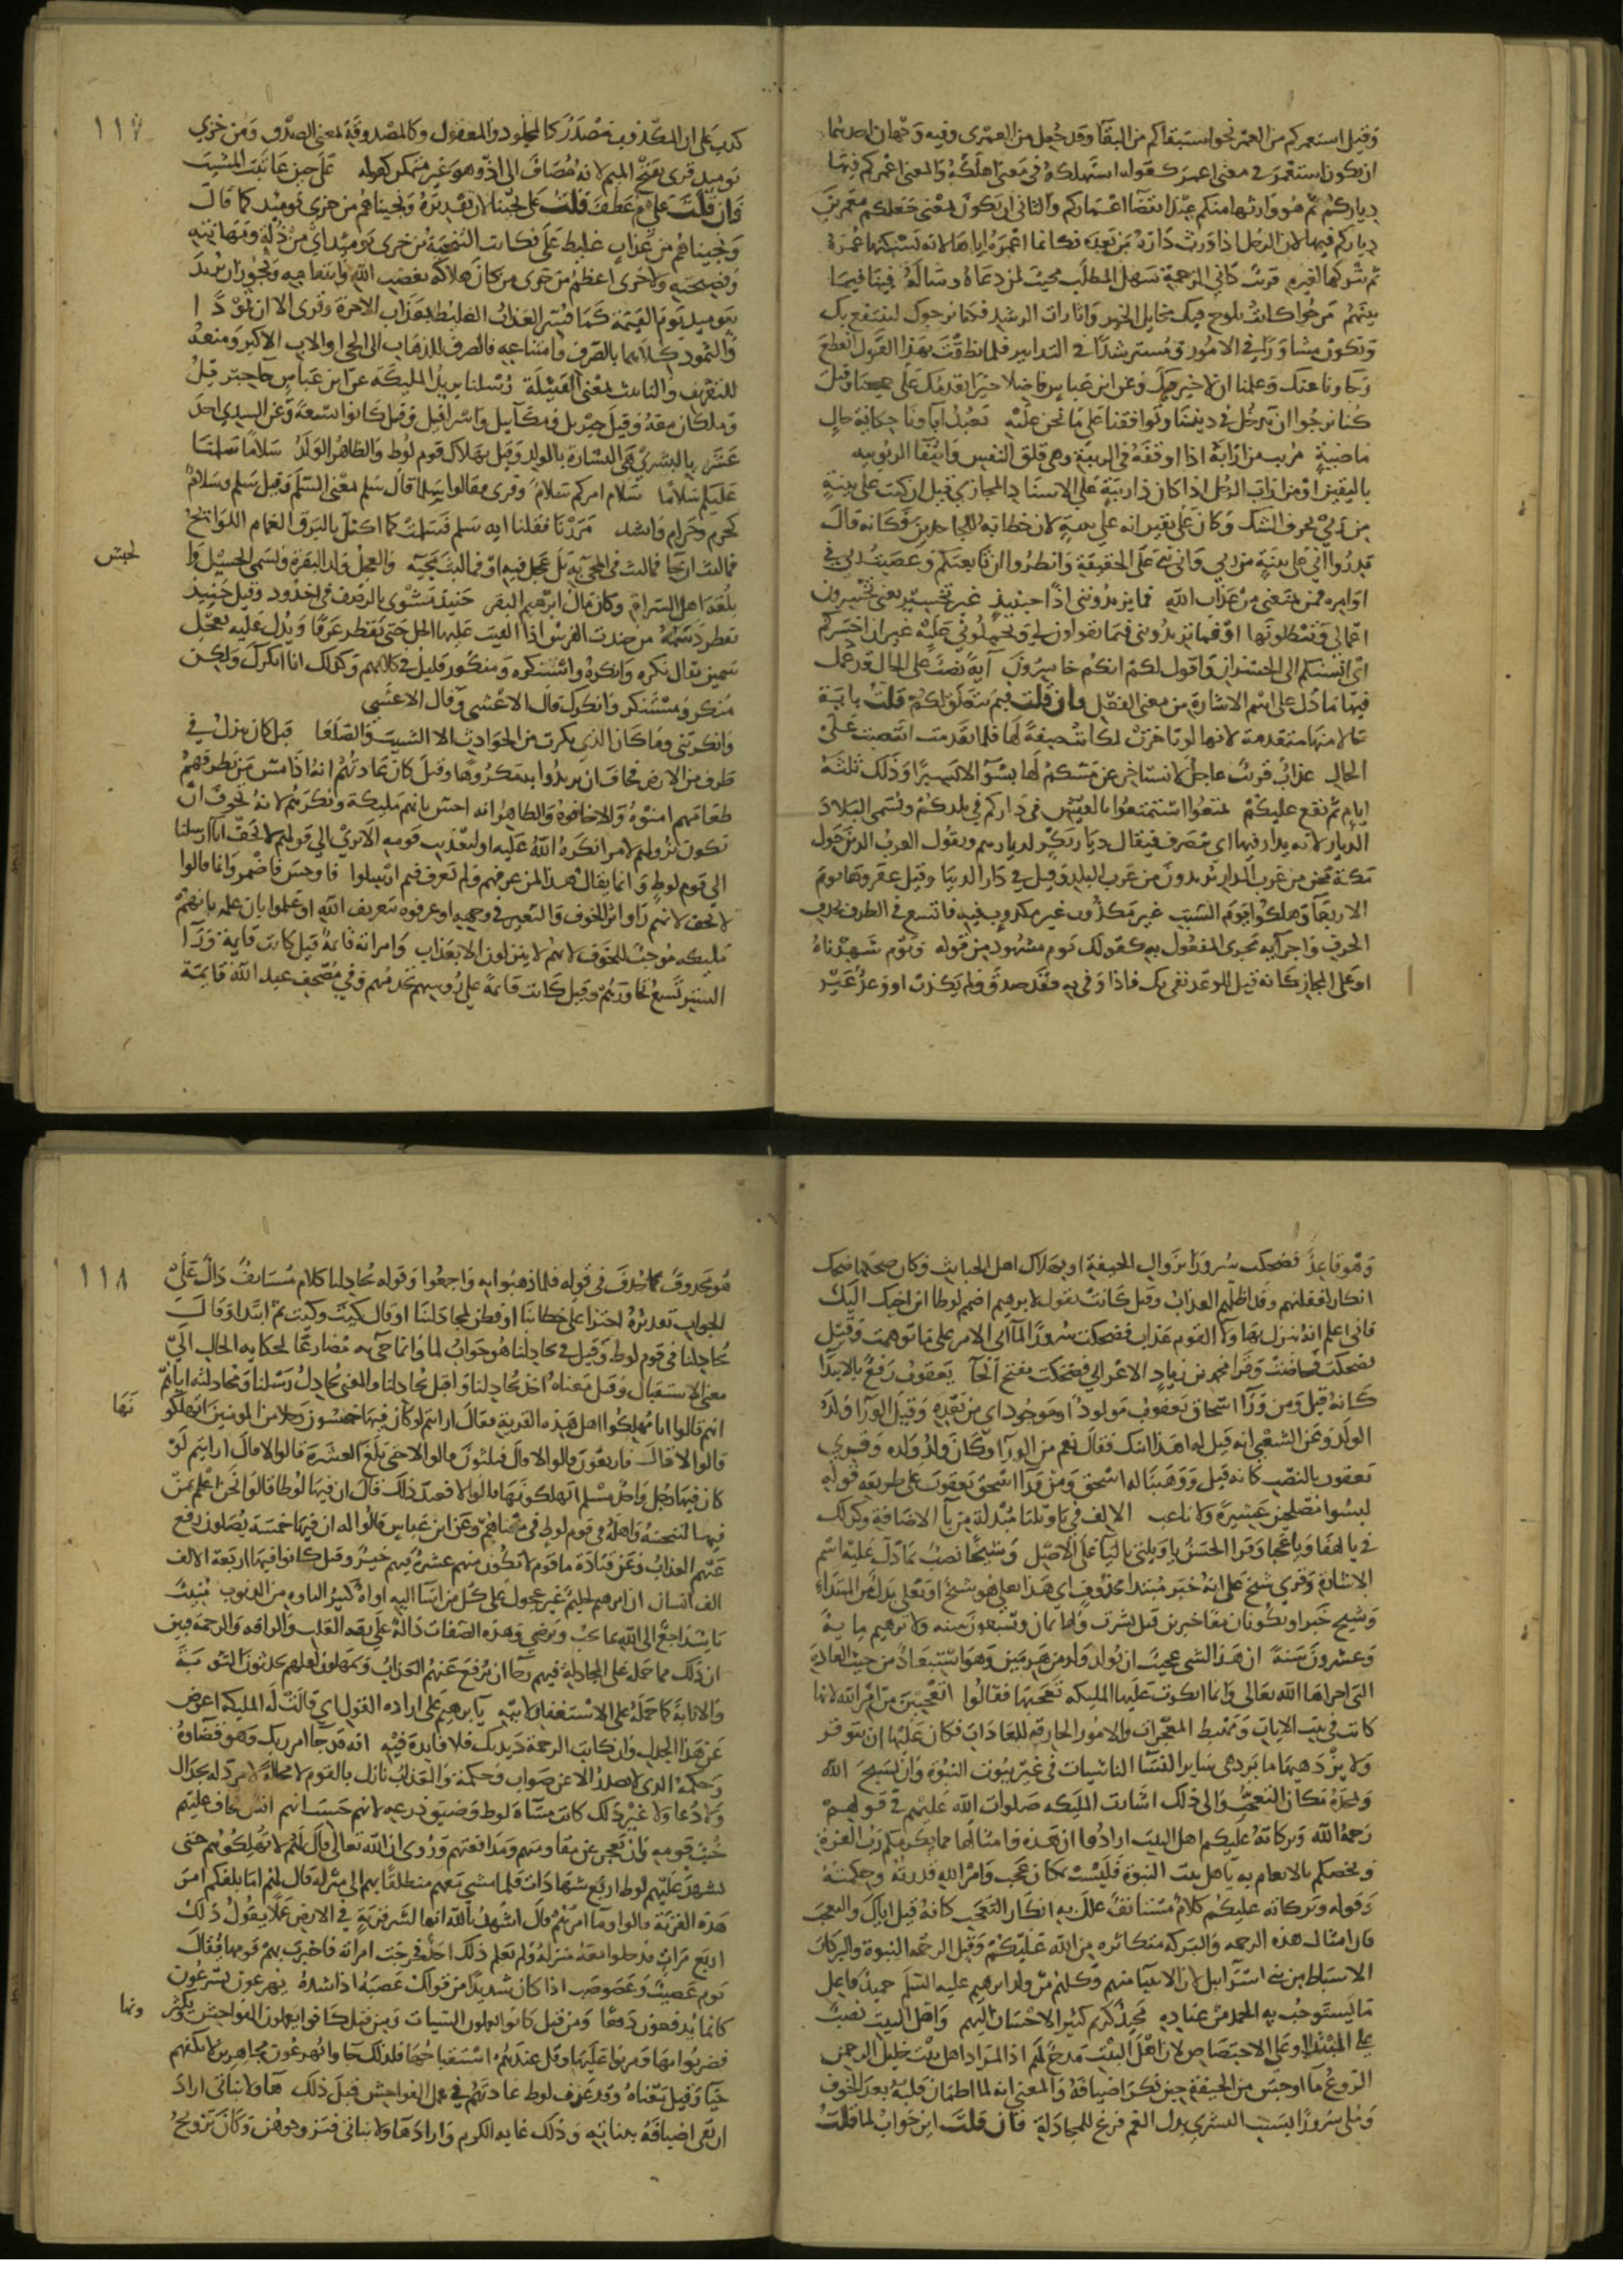 وقيل استعمركم من العمر نحو استبقاكم من البقا وقد جعل من العمرى وفيه وجهان احدهما
ان يكون استعمر في معنى اعمر كقوله استهلكه في معنى اهلكه والمعنى اعمركم فيها
دياركم ثم هو وارثها منكم عند انقضا اعماركم والثاني ان يكون بمعنى جعلكم معمرين
دياركم فيها لان الرجل اذا ورث داره من بعده فكانما اعمره اياها لانه يسكنها عمره
ثم يتركها لغيره قريب داني الرحمة سهل المطلب مجيب لمن دعاه وساله فينا فيما
بيننا مرجوا كانت تلوح فيك مخايل الخير وامارات الرشد فكنا نرجوك لننتفع بك
وتكون مشاورا في الامور ومسترشدا في التدابير فلما نطقت بهذا القول انقطع
رجاونا عنك وعلمنا ان لا خير فيك وعن ابن عباس فاضلا خيرا نقدمك على جميعنا وقيل
كنا نرجوا ان تدخل في ديننا وتوافقنا على ما نحن عليه يعبد اباونا حكاية حال
ماضية مريب من ارابه اذا اوقعه في الريبة وهي قلق النفس وانتفا الطمانينة
باليقين او من اراب الرجل اذا كان ذا ريبة على الاسناد المجازي قيل ان كنت على بينة
من ربي بحرف الشك وكان على يقين انه على بينة لان خطابه للجاحدين فكانه قال
قدروا اني على بينة من ربي واني نبي على الحقيقة وانظروا ان تابعتكم وعصيت ربي في
اوامره فمن يمنعني من عذاب الله فما تزيدونني اذا حينيذ غير تخسير يعني تخسرون
اعمالي وتبطلونها او فما تزيدونني فيما تقولون لي وتحملوني عليه غير ان اخسركم
اي انسبكم الى الخسران واقول لكم انكم خاسرون آية نصب على الحال قد عمل
فيها ما دل على اسم الاشارة من معنى الفعل وان قلت فبم يتعلق لكم قلت باية
حالا منها متقدمة لانها لو تاخرت لكانت صفة لها فلما تقدمت انتصبت على
الحال عذاب قريب عاجل لا يستاخر عن مسكم لها بسو الا يسيرا وذلك ثلثة
ايام ثم يقع عليكم تمتعوا استمتعوا بالعيش في داركم في بلدكم وتسمى البلاد
الديار لانه يدار فيها اي يتصرف فيقال ديار بكر لديارهم ويقول العرب الذين حول
مكة نحن من عرب الدار يريدون من عرب البلد وقيل في دار الدنيا وقيل عقروها يوم
الاربعا وهلكوا يوم السبت غير مكذوب غير مكذوب فيه فاتسع في الظرف بحذف
الحرف واجرايه مجرى المفعول به كقولك يوم مشهود من قوله ويوم شهدناه
او على المجاز كانه قيل للوعد نفي بك فاذا وفى به فقد صدق ولم يكذب او وعد غير
١١٧
كذب على ان المكذوب مصدر كالمجلود والمعقول وكالمصدوقة بمعنى الصدق ومن خزي
يوميذ قرى بفتح الميم لانه مضاف الى اذ وهو غير متمكن كقوله على حين عاتبت المشيب
فان قلت علام عطف قلت على نجينا لان تقديره ونجيناهم من خزي يوميذ كما قال
ونجيناهم من عذاب غليظ على وكانت التنجية من خزي يوميذ اي من ذله ومهانته
وفضيحته ولا خزي اعظم من خزي من كان هلاكه بغضب الله وانتقامه ويجوز ان يريد
بيوميذ يوم القيمة كما فسر العذاب الغليظ بعذاب الاخرة وقرى الا ان ثمودا
والثمود كلاهما بالصرف وامتناعه فالصرف للذهاب الى الحي او الاب الاكبر ومنعه
للتعريف والتانيث بمعنى القبيلة رسلنا يريد المليكة عن ابن عباس جاه جبريل
وملكان معه وقيل جبريل وميكاييل واسرافيل وقيل كانوا تسعة وعن السدي احد
عشر بالبشرى هي البشارة بالولد وقيل بهلاك قوم لوط والظاهر الولد سلاما سلمنا
عليك سلاما سلام امركم سلام وقرى فقالوا سلما قال سلم بمعنى السلام وقيل سلم وسلام
كحرم وحرام وانشد مررنا فقلنا ايه سلم فسلمت كما اكتل بالبرق الغمام اللوايح
فما لبث ان جا فما لبث في المجي به بل عجل فيه او فما لبث مجيه والعجل ولد البقرة ويسمى الحسيل وا
لخبش
بلغة اهل السراة وكان مال ابرهيم البقر حنيذ مشوي بالرضف في اخدود وقيل حنيذ
يقطر دسمه من حنذت الفرس اذا القيت عليها الجل حتى تقطر عرقا ويدل عليه بعجل
سمين يقال نكره وانكره واستنكره ومنكور قليل في كلامهم وكذلك انا انكرك ولكن
منكر ومستنكر وانكرك قال الاعشى وقال الاعشى
وانكرتني وما كان الذي نكرت من الحوادث الا الشيب والصلعا قيل كان ينزل في
طرف من الارض فخاف ان يريدوا به مكروها وقيل كان عادتهم انه اذا مس من يطرقهم
طعامهم امنوه والا خافوه والظاهر انه احس بانهم مليكة ونكرهم لانه تخوف ان
يكون نزولهم لامر انكره الله عليه او لتعذيب قومه الا ترى الى قولهم لا تخف انا ارسلنا
الى قوم لوط وانما يقال هذا لمن عرفهم ولم يعرف فيم ارسلوا فاوجس فاضمر وانما قالوا
لا تخف لانهم راوا اثر الخوف والتغير في وجهه او عرفوه بتعريف الله او علموا بان علمه بانهم
مليكة موجب للخوف لانهم لا ينزلون الا بعذاب وامراته قايمة قيل كانت قايمة ورا
الستر تسمع تحاورهم وقيل كانت قايمة على رووسهم تخدمهم وفي مصحف عبد الله قايمة
وهو قاعد فضحكت سرورا بزوال الخيفة او بهلاك اهل الخبايث وكان ضحكها ضحك
انكار لغفلتهم وقد اظلهم العذاب وقيل كانت تقول لابرهيم اضمم لوطا ابن اخيك اليك
فاني اعلم انه ينزل بهاولا القوم عذاب فضحكت سرورا لما اتى الامر على ما توهمت وقيل
فضحكت فحاضت وقرا محمد بن زياد الاعرابي فضحكت بفتح الحا يعقوب رفع بالابتدا
كانه قيل ومن ورا اسحاق يعقوب مولود او موجود اي من بعده وقيل الورا ولد
الولد وعن الشعبي انه قيل له اهذا ابنك فقال نعم من الورا وكان ولد ولده وقرى
يعقوب بالنصب كانه قيل ووهبنا له اسحق ومن ورا اسحق يعقوب على طريقة قوله
ليسوا مصلحين عشيرة ولا ناعب الالف في ياويلتا مبدلة من يا الاضافة وكذلك
في يا لهفا ويا عجبا وقرا الحسن ياويلتي باليا على الاصل وشيخا نصب بما دل عليه اسم
الاشارة وقرى شيخ على انه خبر مبتدا محذوف اي هذا بعلي هو شيخ او بعلي بدل من المبتداء
وشيخ خبر او يكونان معا خبرين قيل بشرت ولها ثمان وتسعون سنة ولابرهيم ماية
وعشرون سنة ان هذا لشي عجيب ان يولد ولد من هرمين وهو استبعاد من حيث العادة
التي اجراها الله تعالى وانما انكرت عليها المليكة تعجبها فقالوا اتعجبين من امر الله لانها
كانت في بيت الايات ومهبط المعجزات والامور الخارقة للعادات فكان عليها ان تتوقر
ولا يزدهيها ما يزدهي ساير النسا الناشيات في غير بيوت النبوة وان تسبح الله
وتمجده مكان التعجب والى ذلك اشارت المليكة صلوات الله عليهم في قولهم
رحمة الله وبركاته عليكم اهل البيت ارادوا ان هذه وامثالها مما يكرمكم به رب العزة
ويخصكم بالانعام به يا اهل بيت النبوة فليست بمكان عجب وامر الله قدرته وحكمته
وقوله وبركاته عليكم كلام مستانف علل به انكار التعجب كانه قيل اياك والتعجب
فان امثال هذه الرحمة والبركة متكاثرة من الله عليكم وقيل الرحمة النبوة والبركات
الاسباط من بني اسرايل لان الانبيا منهم وكلهم من ولد ابرهيم عليه السلم حميد فاعل
ما يستوجب به الحمد من عباده مجيد كريم كثير الاحسان اليهم واهل البيت نصب
على النداء وعلى الاختصاص لان اهل البيت مدح لهم اذ المراد اهل بيت خليل الرحمن
الروع ما اوجس من الخيفة حين نكر اضيافه والمعنى انه لما اطمان قلبه بعد الخوف
وملى سرورا بسبب البشرى بدل الغم فرغ للمجادلة فان قلت اين جواب لما قلت
١١٨
هو محذوف كما حذف في قوله فلما ذهبوا به واجمعوا وقوله يجادلنا كلام مستانف دال على
الجواب تقديره اجترا على خطابنا او فطن لمجادلتنا او قال كيت وكيت ثم ابتدا وقال
يجادلنا في قوم لوط وقيل في يجادلنا هو جواب لما وانما جي به مضارعا لحكاية الحال الى
معنى الاستقبال وقيل معناه اخذ يجادلنا واقبل يجادلنا والمعنى يجادل رسلنا ومجادلته اياهم
انهم قالوا انا مهلكوا اهل هذه القرية فقال ارايتم لو كان فيها خمسون رجلا من المومنين اتهلكو
نها
قالوا لا قال فاربعون قالوا لا قال فثلثون قالوا لا حتى بلغ العشرة قالوا لا قال ارايتم لو
كان فيها رجل واحد مسلم اتهلكونها قالوا لا فعند ذلك قال ان فيها لوطا قالوا نحن اعلم بمن
فيها لننجينه واهله في قوم لوط في معناهم وعن ابن عباس قالوا له ان فيها خمسة يصلون رفع
عنهم العذاب وعن قتادة ما قوم لا يكون فيهم عشرة فيهم خير وقيل كانوا فيها اربعة الاف
الف انسان ان ابرهيم لحليم غير عجول على كل من اسا اليه اواه كثير التاوه من الذنوب منيب
تايب راجع الى الله بما يحب ويرضى وهذه الصفات دالة على رقة القلب والرافة والرحمة فبين
ان ذلك مما حمله على المجادلة فيهم رجا ان يرفع عنهم العذاب ويمهلون لعلهم يحدثون التوبة
والانابة كما حمله على الاستغفار لابيه يا ابرهيم على ارادة القول اي قالت له المليكة اعرض
عن هذا الجدل وان كانت الرحمة ديدنك فلا فايدة فيه انه قد جا امر ربك وهو قضاوه
وحكمه الذي لا يصدر الا عن صواب وحكمة والعذاب نازل بالقوم لا محالة لا مرد له بجدال
ولا دعا ولا غير ذلك كانت مساة لوط وضيق ذرعه لانهم حسب انهم انس فخاف عليهم
خبث قومه وان يعجز عن مقاومتهم ومدافعتهم وروى ان الله تعالى قال لهم لا تهلكوهم حتى
يشهد عليهم لوط اربع شهادات فلما مشى معهم منطلقا بهم الى منزله قال لهم اما بلغكم امر
هذه القرية قالوا وما امرهم قال اشهد بالله انها لشر قرية في الارض عملا يقول ذلك
اربع مرات فدخلوا معه منزله ولم يعلم ذلك احد فخرجت امراته فاخبرت بهم قومها فقال
يوم عصيب وعصوصب اذا كان شديدا من قولك عصبه اذا شده يهرعون يسرعون
كانما يدفعون دفعا ومن قبل كانوا يعملون السيات ومن قبل كانوا يعملون الفواحش ويكثر
ونها
فضربوا بها ومرنوا عليها وقل عندهم استقباحها فلذلك جاوا يهرعون مجاهرين لا يكفهم
حيا وقيل معناه وقد عرف لوط عادتهم في عمل الفواحش قبل ذلك هاولا بناتي اراد
ان يقي اضيافه ببناته وذلك غاية الكرم واراد هاولا بناتي فتزوجوهن وكان تزويج